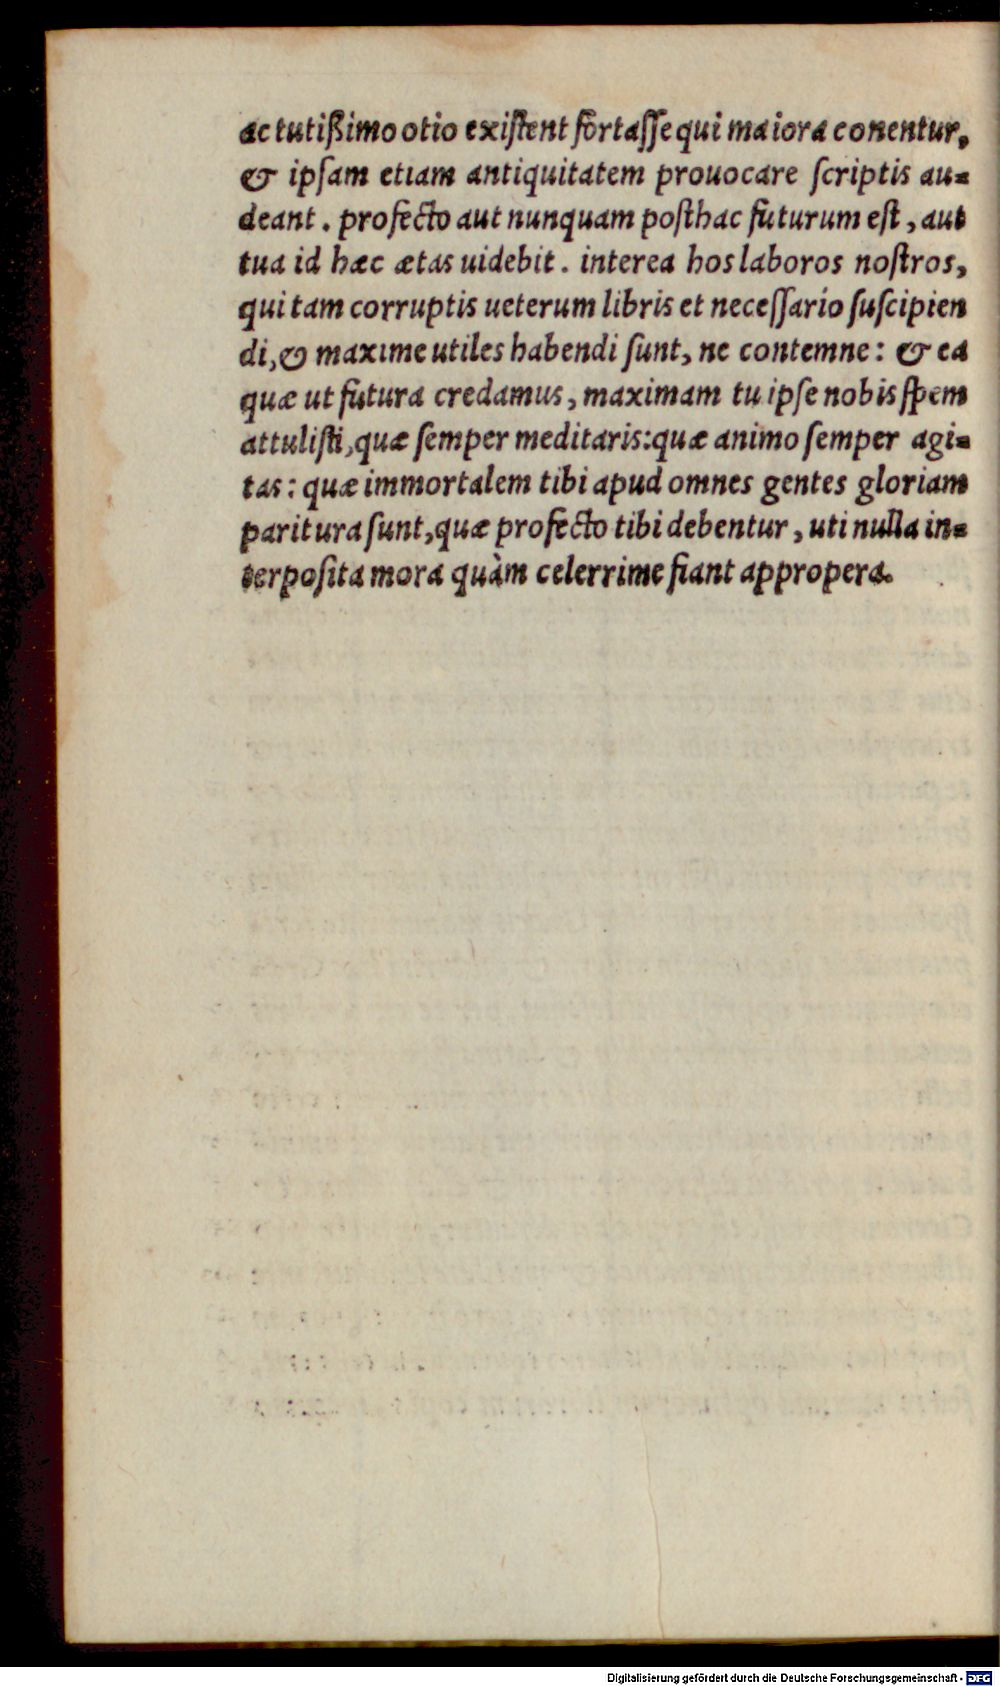 ac tutißimo otio existent fortaſſe qui maiora conentur,
& ipſam etiam antiquitatem prouocare ſcriptis au-
deant. profecto aut nunquam poſthac futurum eſt, aut
tua id hæc ætas uidebit. interea hos laboros noſtros,
qui tam corruptis ueterum libris et neceſſario ſuſcipien
di, & maxime utiles habendi ſunt, ne contemne: & ea
quæ ut futura credamus, maximam tu ipſe nobis ſpem
attuliſti, quæ ſemper meditaris: quæ animo ſemper agi-
tas: quæ immortalem tibi apud omnes gentes gloriam
paritura ſunt, quæ profecto tibi debentur, uti nulla in-
terpoſita mora quàm celerrime fiant appropera.
Digitalisierung gefördert durch die Deutsche Forschungsgemeinschaft - DFG